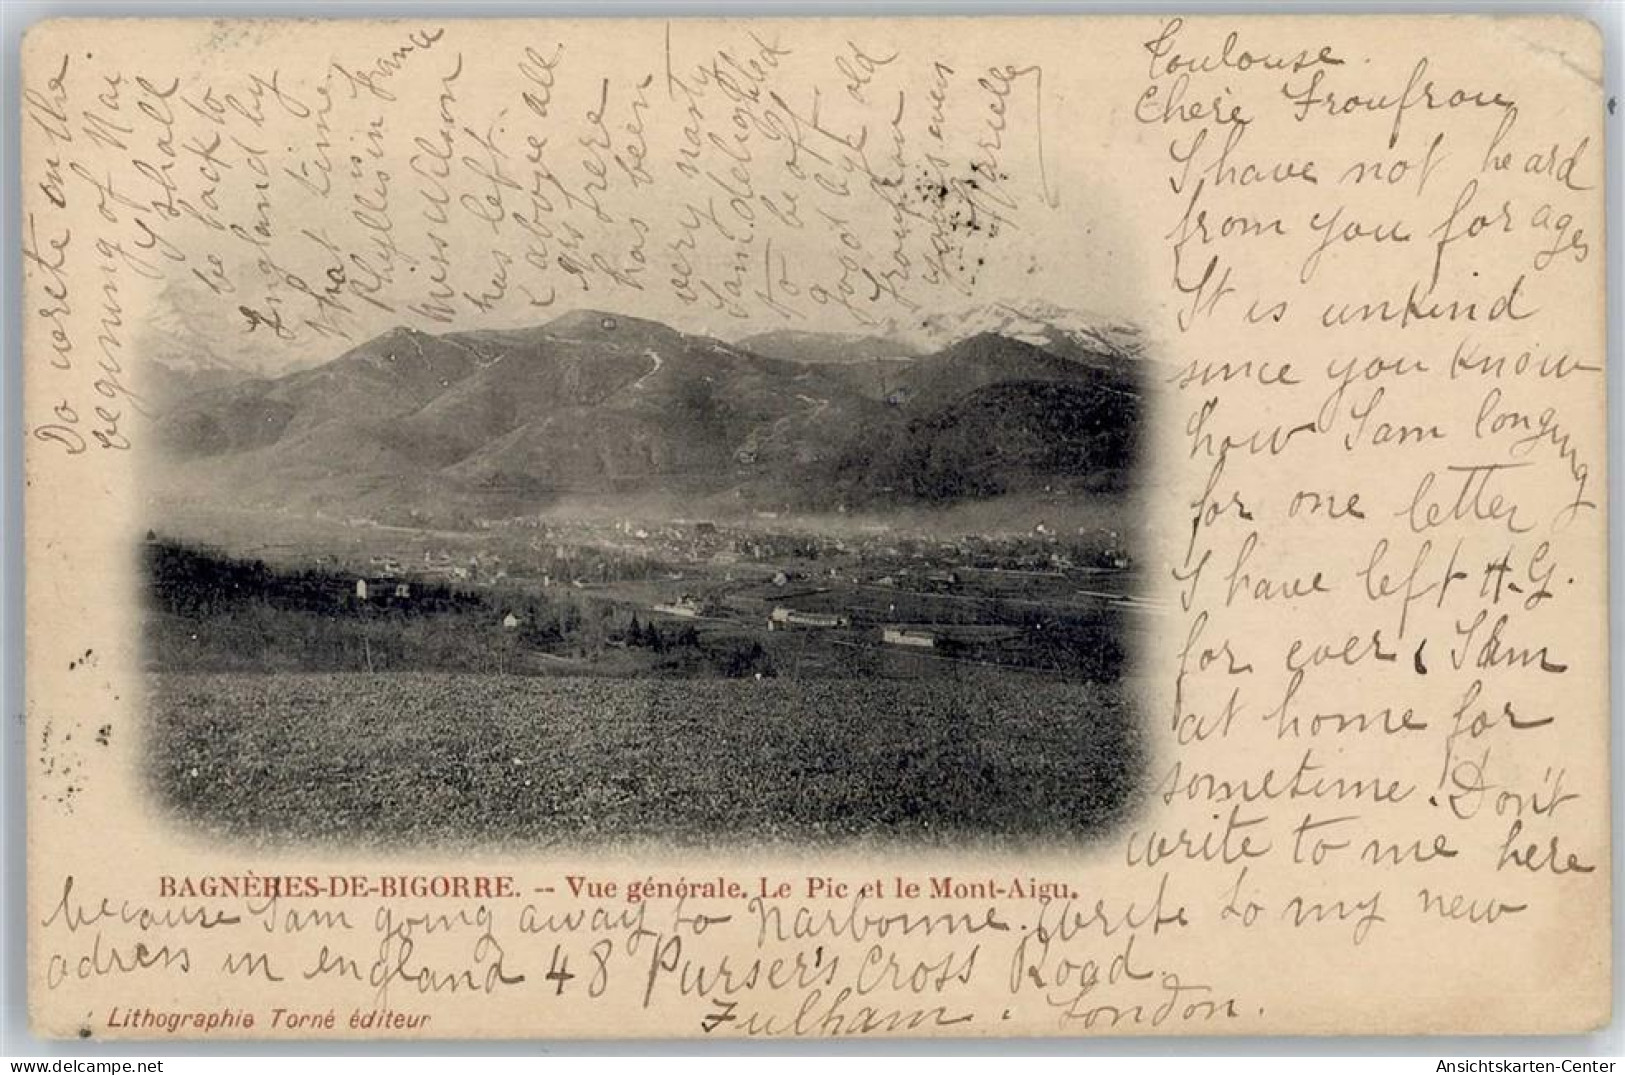 Toulouse.
Chère Froufrou
I have not heard
from you for ages
It is unkind
since you know
how I am longing
for one letter
I have left H.G.
for ever. I am
at home for
sometime. Don't
write to me here
because I am going away to Narbonne. Write to my new
adress in england 48 Purser's Cross Road.
Fulham. London.
Do write on the
beginning of Mai
I shall
be back to
England by
that time.
Phyllis is in France
Miss Wilson
has left.
above all
frere
has been
very nasty
I am delighted
to be of
old
Froufrou
yours ever
BAGNÈRES-DE-BIGORRE. -- Vue générale. Le Pic et le Mont-Aigu.
Lithographie Torné éditeur
Ansichtskarten-Center